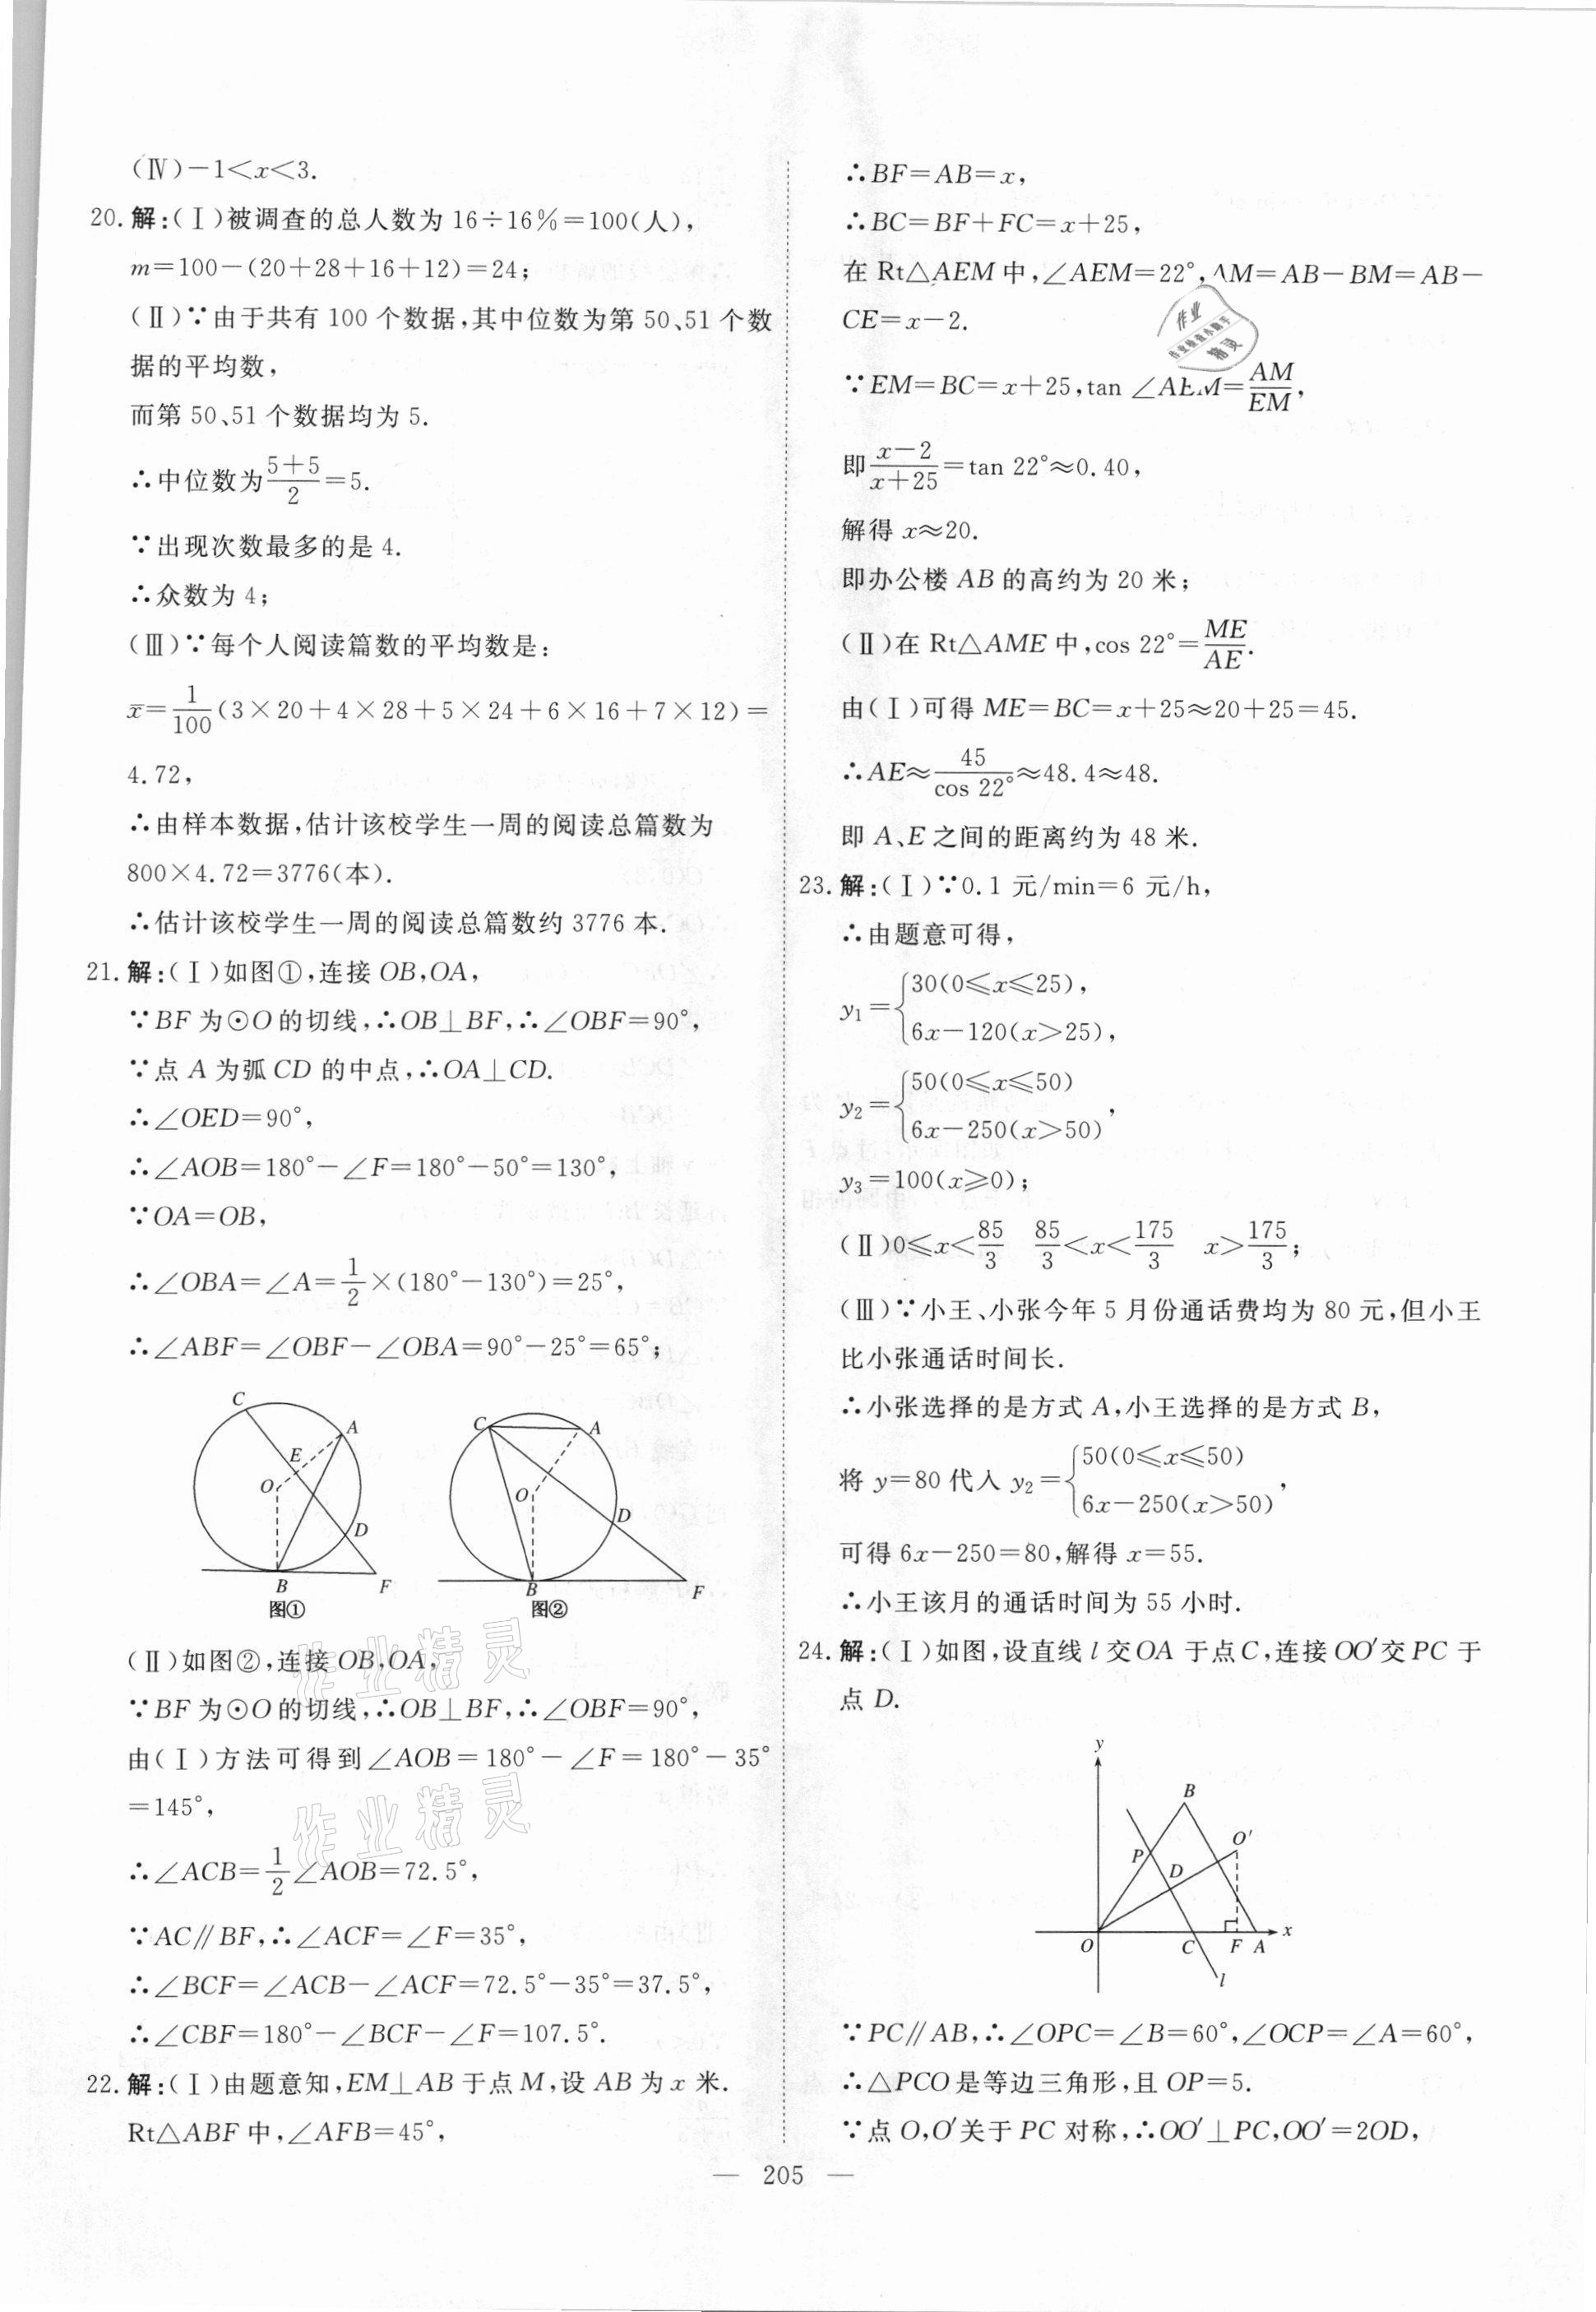 (Ⅳ)－1＜x＜3.
20. 解:(Ⅰ)被调查的总人数为 16÷16%＝100(人),
m＝100－(20＋28＋16＋12)＝24;
(Ⅱ)∵由于共有 100 个数据,其中位数为第 50、51 个数
据的平均数,
而第 50、51 个数据均为 5.
∴中位数为$\frac{5+5}{2}$＝5.
∵出现次数最多的是 4.
∴众数为 4;
(Ⅲ)∵每个人阅读篇数的平均数是:
$\bar{x}$＝$\frac{1}{100}$(3×20＋4×28＋5×24＋6×16＋7×12)＝
4.72,
∴由样本数据,估计该校学生一周的阅读总篇数为
800×4.72＝3776(本).
∴估计该校学生一周的阅读总篇数约 3776 本.
21. 解:(Ⅰ)如图①,连接 OB,OA,
∵BF 为⊙O 的切线,∴OB⊥BF,∴∠OBF＝90°,
∵点 A 为弧 CD 的中点,∴OA⊥CD.
∴∠OED＝90°,
∴∠AOB＝180°－∠F＝180°－50°＝130°,
∵OA＝OB,
∴∠OBA＝∠A＝$\frac{1}{2}$×(180°－130°)＝25°,
∴∠ABF＝∠OBF－∠OBA＝90°－25°＝65°;
C
A
E
O
D
B
F
图①
C
A
O
D
B
F
图②
(Ⅱ)如图②,连接 OB,OA,
∵BF 为⊙O 的切线,∴OB⊥BF,∴∠OBF＝90°,
由(Ⅰ)方法可得到∠AOB＝180°－∠F＝180°－35°
＝145°,
∴∠ACB＝$\frac{1}{2}$∠AOB＝72.5°,
∵AC∥BF,∴∠ACF＝∠F＝35°,
∴∠BCF＝∠ACB－∠ACF＝72.5°－35°＝37.5°,
∴∠CBF＝180°－∠BCF－∠F＝107.5°.
22. 解:(Ⅰ)由题意知,EM⊥AB 于点 M,设 AB 为 x 米.
Rt△ABF 中,∠AFB＝45°,
∴BF＝AB＝x,
∴BC＝BF＋FC＝x＋25,
在 Rt△AEM 中,∠AEM＝22°,AM＝AB－BM＝AB－
CE＝x－2.
∵EM＝BC＝x＋25,tan ∠AEM＝$\frac{AM}{EM}$,
即$\frac{x-2}{x+25}$＝tan 22°≈0.40,
解得 x≈20.
即办公楼 AB 的高约为 20 米;
(Ⅱ)在 Rt△AME 中,cos 22°＝$\frac{ME}{AE}$.
由(Ⅰ)可得 ME＝BC＝x＋25≈20＋25＝45.
∴AE≈$\frac{45}{\cos 22°}$≈48.4≈48.
即 A、E 之间的距离约为 48 米.
23. 解:(Ⅰ)∵0.1 元/min＝6 元/h,
∴由题意可得,
y₁＝{30(0≤x≤25),
6x－120(x＞25),
y₂＝{50(0≤x≤50)
6x－250(x＞50),
y₃＝100(x≥0);
(Ⅱ)0≤x＜$\frac{85}{3}$ $\frac{85}{3}$＜x＜$\frac{175}{3}$ x＞$\frac{175}{3}$;
(Ⅲ)∵小王、小张今年 5 月份通话费均为 80 元,但小王
比小张通话时间长.
∴小张选择的是方式 A,小王选择的是方式 B,
将 y＝80 代入 y₂＝{50(0≤x≤50)
6x－250(x＞50),
可得 6x－250＝80,解得 x＝55.
∴小王该月的通话时间为 55 小时.
24. 解:(Ⅰ)如图,设直线 l 交 OA 于点 C,连接 OO′交 PC 于
点 D.
y
B
O′
P
D
O
C
F
A
x
l
∵PC∥AB,∴∠OPC＝∠B＝60°,∠OCP＝∠A＝60°,
∴△PCO 是等边三角形,且 OP＝5.
∵点 O,O′关于 PC 对称,∴OO′⊥PC,OO′＝2OD,
— 205 —
作业精灵
作业精灵
作业
作业检查小助手
精灵